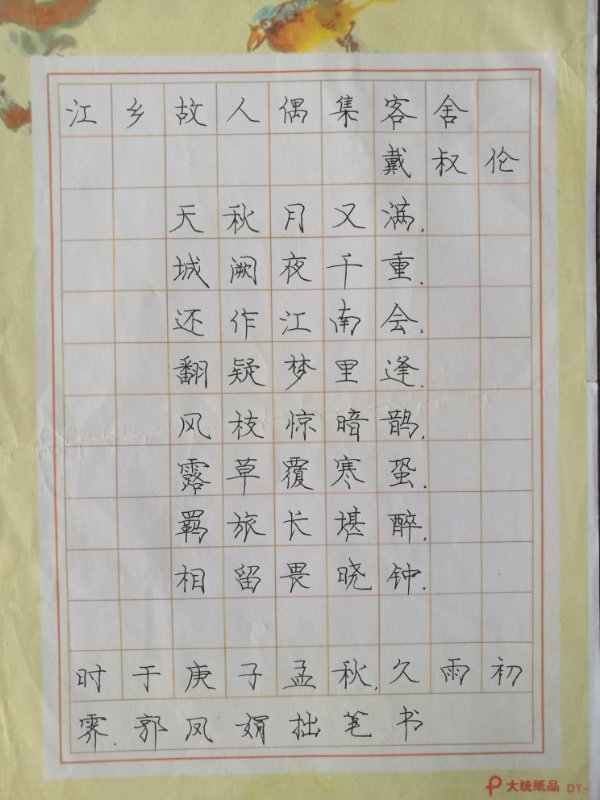 江乡故人偶集客舍
戴叔伦
天秋月又满.
城阙夜千重.
还作江南会,
翻疑梦里逢.
风枝惊暗鹊.
露草覆寒蛩.
羁旅长堪醉,
相留畏晓钟.
时于庚子孟秋,久雨初
霁.郭凤娟拙笔书
大统纸品 DT-